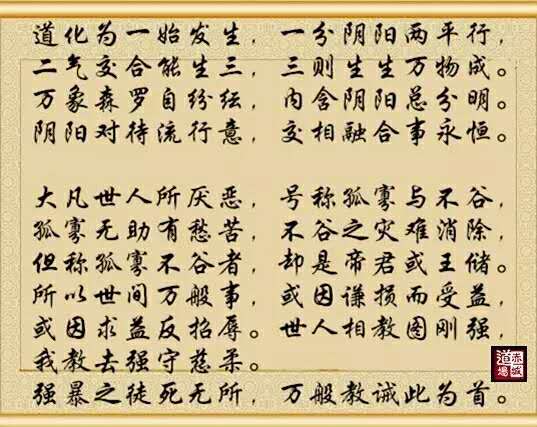 道化为一始发生，一分阴阳两平行，
二气交合能生三，三则生生万物成。
万象森罗自纷纭，内含阴阳总分明。
阴阳对待流行意，交相融合事永恒。
大凡世人所厌恶，号称孤寡与不谷，
孤寡无助有愁苦，不谷之灾难消除，
但称孤寡不谷者，却是帝君或王储。
所以世间万般事，或因谦损而受益，
或因求益反招辱。世人相教图刚强，
我教去强守慈柔。
强暴之徒死无所，万般教诫此为首。
赤城道场